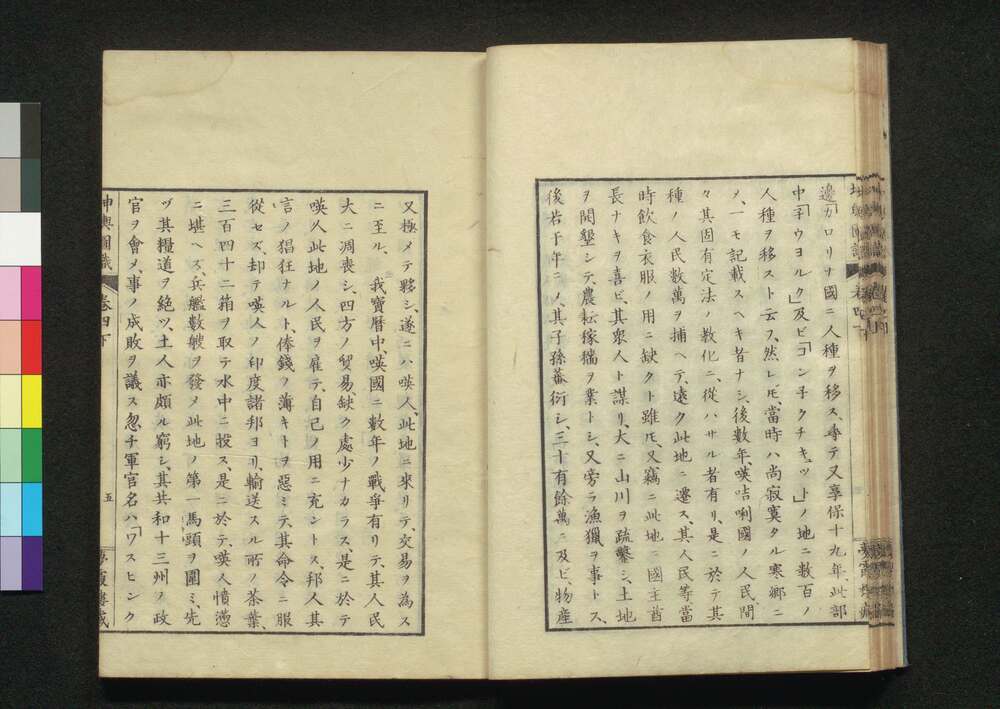 邊「カロリナ國ニ人種ヲ移ス、尋テ又享保十九年、此部
中「子ウヨルク」及ビ「コン子クチキュット」ノ地ニ数百ノ
人種ヲ移スト云フ、然レ𪜈、當時ハ尚寂寞タル寒郷ニ
メ、一モ記載スヘキ者ナシ、後數年、暎咭唎國ノ人民、間
々其固有定法ノ教化ニ從ハサル者有リ、是ニ於テ其
種ノ人民数萬ヲ捕ヘテ、遠ク此地ニ遷ス、其人民等當
時飲食衣服ノ用ニ缺クト雖𪜈、又竊ニ此地ニ國主酋
長ナキヲ喜ビ、其衆人ト謀リ、大ニ山川ヲ疏鑿シ、土地
ヲ開墾シテ、農耘稼穡ヲ業トシ、又旁ラ漁獵ヲ事トス、
後若干年ニノ、其子孫蕃衍シ、三十有餘萬ニ及ビ、物産
又極メテ夥シ、遂ニハ暎人、此地ニ來リテ、交易ヲ為ス
ニ至ル、 我寶暦中、暎國ニ數年ノ戰爭有リテ、其人民
大ニ凋喪シ、四方ノ貿易、缺ク處少ナカラス、是ニ於テ
暎人此地ノ人民ヲ雇テ、自己ノ用ニ充ントス、邦人其
言ノ猖狂ナルト、俸錢ノ薄キトヲ惡ミテ、其命令ニ服
從セズ、却テ暎人ノ印度諸邦ヨリ、輸送スル所ノ茶葉、
三百四十二箱ヲ取テ水中ニ投ス、是ニ於テ、暎人憤懣
ニ堪ヘズ、兵艦數艘ヲ發メ此地ノ第一馬頭ヲ圍ミ、先
ヅ其糧道ヲ絶ツ、土人亦頗ル窮シ、其共和十三州ノ政
官ヲ會メ、事ノ成敗ヲ議ス忽チ軍官名ハ「ワスヒンク
坤輿圖識 卷四下 五